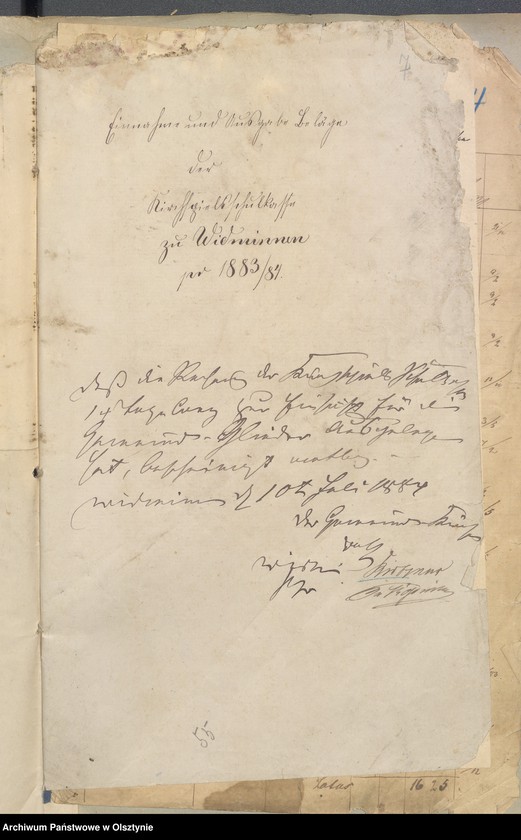 7
Einnahme und Ausgabe Beläge
der
Kirchspielsschulkasse
zu Widminnen
pro 1883/84.
Daß die Rechnung der Kirchspiels Schulkasse
14 Tage lang zur Einsicht für die
Gemeinde-Glieder ausgelegen
hat, bescheinigt
Widminnen d 10t Juli 1884
Der Gemeinde-Kirchen
rath
55
Latus 16 25
Archiwum Państwowe w Olsztynie